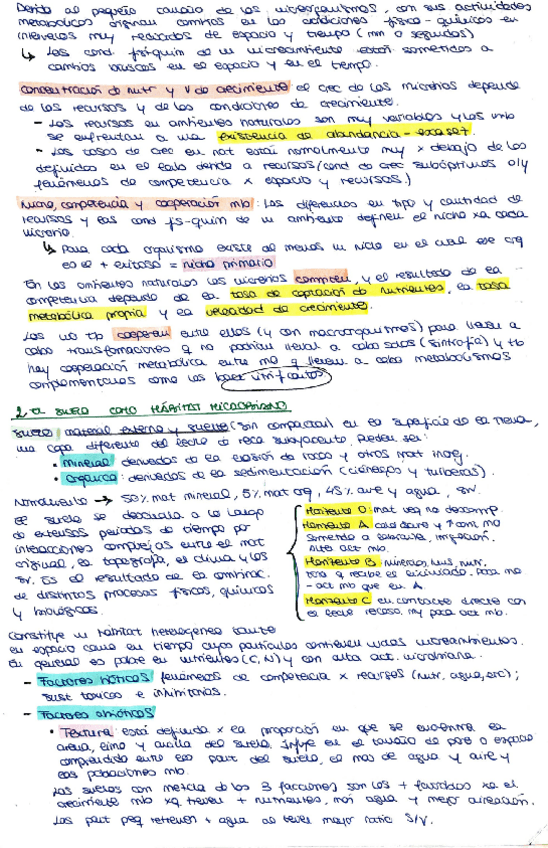 Debido al pequeño tamaño de los microorganismos, con sus actividades
metabólicas originan cambios en las condiciones físico-químicas en
intervalos muy reducidos de espacio y tiempo (mm o segundos)
↳ Las cond. fis-quim de un microambiente están sometidas a
cambios bruscos en el espacio y en el tiempo.
Concentración de nutr y V de crecimiento el crec de los microbios depende
de los recursos y de las condiciones de crecimiento.
- Los recursos en ambientes naturales son muy variables y los mb
se enfrentan a una existencia de abundancia-escasez.
- Las tasas de crec en nat están normalmente muy x debajo de las
definidas en el lab debido a recursos/cond de crec subóptimos o/y
fenómenos de competencia x espacio y recursos.)
Nicho, competencia y cooperación mb: Las diferencias en tipo y cantidad de
recursos y las cond fs-quim de un ambiente definen el nicho xa cada
microbio.
↳ Para cada organismo existe al menos un nicho en el cual ese org
es el + exitoso = nicho primario
En los ambientes naturales los microbios compiten, y el resultado de la
competencia depende de la tasa de captación de nutrientes, la tasa
metabólica propia y la velocidad de crecimiento.
Los mo tb cooperan entre ellos (y con macroorganismos) para llevar a
cabo transformaciones q no podrían llevar a cabo solos (sintrofia) y tb
hay cooperación metabólica entre mo q llevan a cabo metabolismos
complementarios como las bact nitrificantes
2. El suelo como hábitat microbiano
Suelo: material externo y suelto (sin compactar) en la superficie de la tierra,
una capa diferente del lecho de roca subyacente. Pueden ser:
• Mineral derivados de la erosión de rocas y otros mat inorg.
• Orgánico: derivados de la sedimentación (ciénagas y turberas).
Normalmente → 50% mat mineral, 5% mat org, 45% aire y agua, sv.
El suelo se desarrolla a lo largo
de extensos periodos de tiempo por
interacciones complejas entre el mat
original, la topografía, el clima y los
sv. Es el resultado de la combinac.
de distintos procesos físicos, químicos
y biológicos.
Horizonte O: mat veg no descomp.
Horizonte A
sometido a
alta act mb.
Horizonte B minerales, nutr.
- act mo que en A.
Horizonte C en contacto directo con
el lecho rocoso, muy poca act mb.
Constituye un hábitat heterogéneo tanto
en espacio como en tiempo cuyas partículas contienen varios microambientes.
En general es pobre en nutrientes (C, N) y con alta act. microbiana.
- Factores bióticos fenómenos de competencia x recursos (nutr, agua, etc);
sust tóxicas e inhibitorias.
- Factores abióticos
• Textura: está definida x la proporción en que se encuentra la
arena, limo y arcilla del suelo. Influye en el tamaño de poro o espacio
comprendido entre las part del suelo, el mov de agua y aire y
las poblaciones mb.
Los suelos con mezcla de las 3 fracciones son los + favorables xa el
crecimiento mb xq tienen + nutrientes, más agua y mejor aireación.
Las part peq retienen + agua al tener mayor ratio S/V.